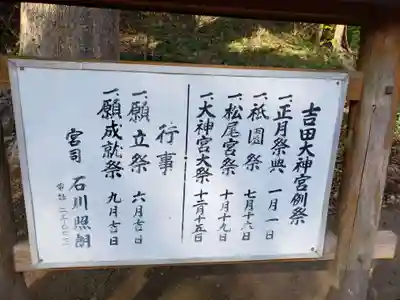 吉田大神宮例祭
一、正月祭典 一月一日
一、祇園祭 七月十六日
一、松尾宮祭 十月十九日
一、大神宮大祭 十二月十五日
行事
一、願立祭 六月吉日
一、願成就祭 九月吉日
宮司 石川照朗
電話